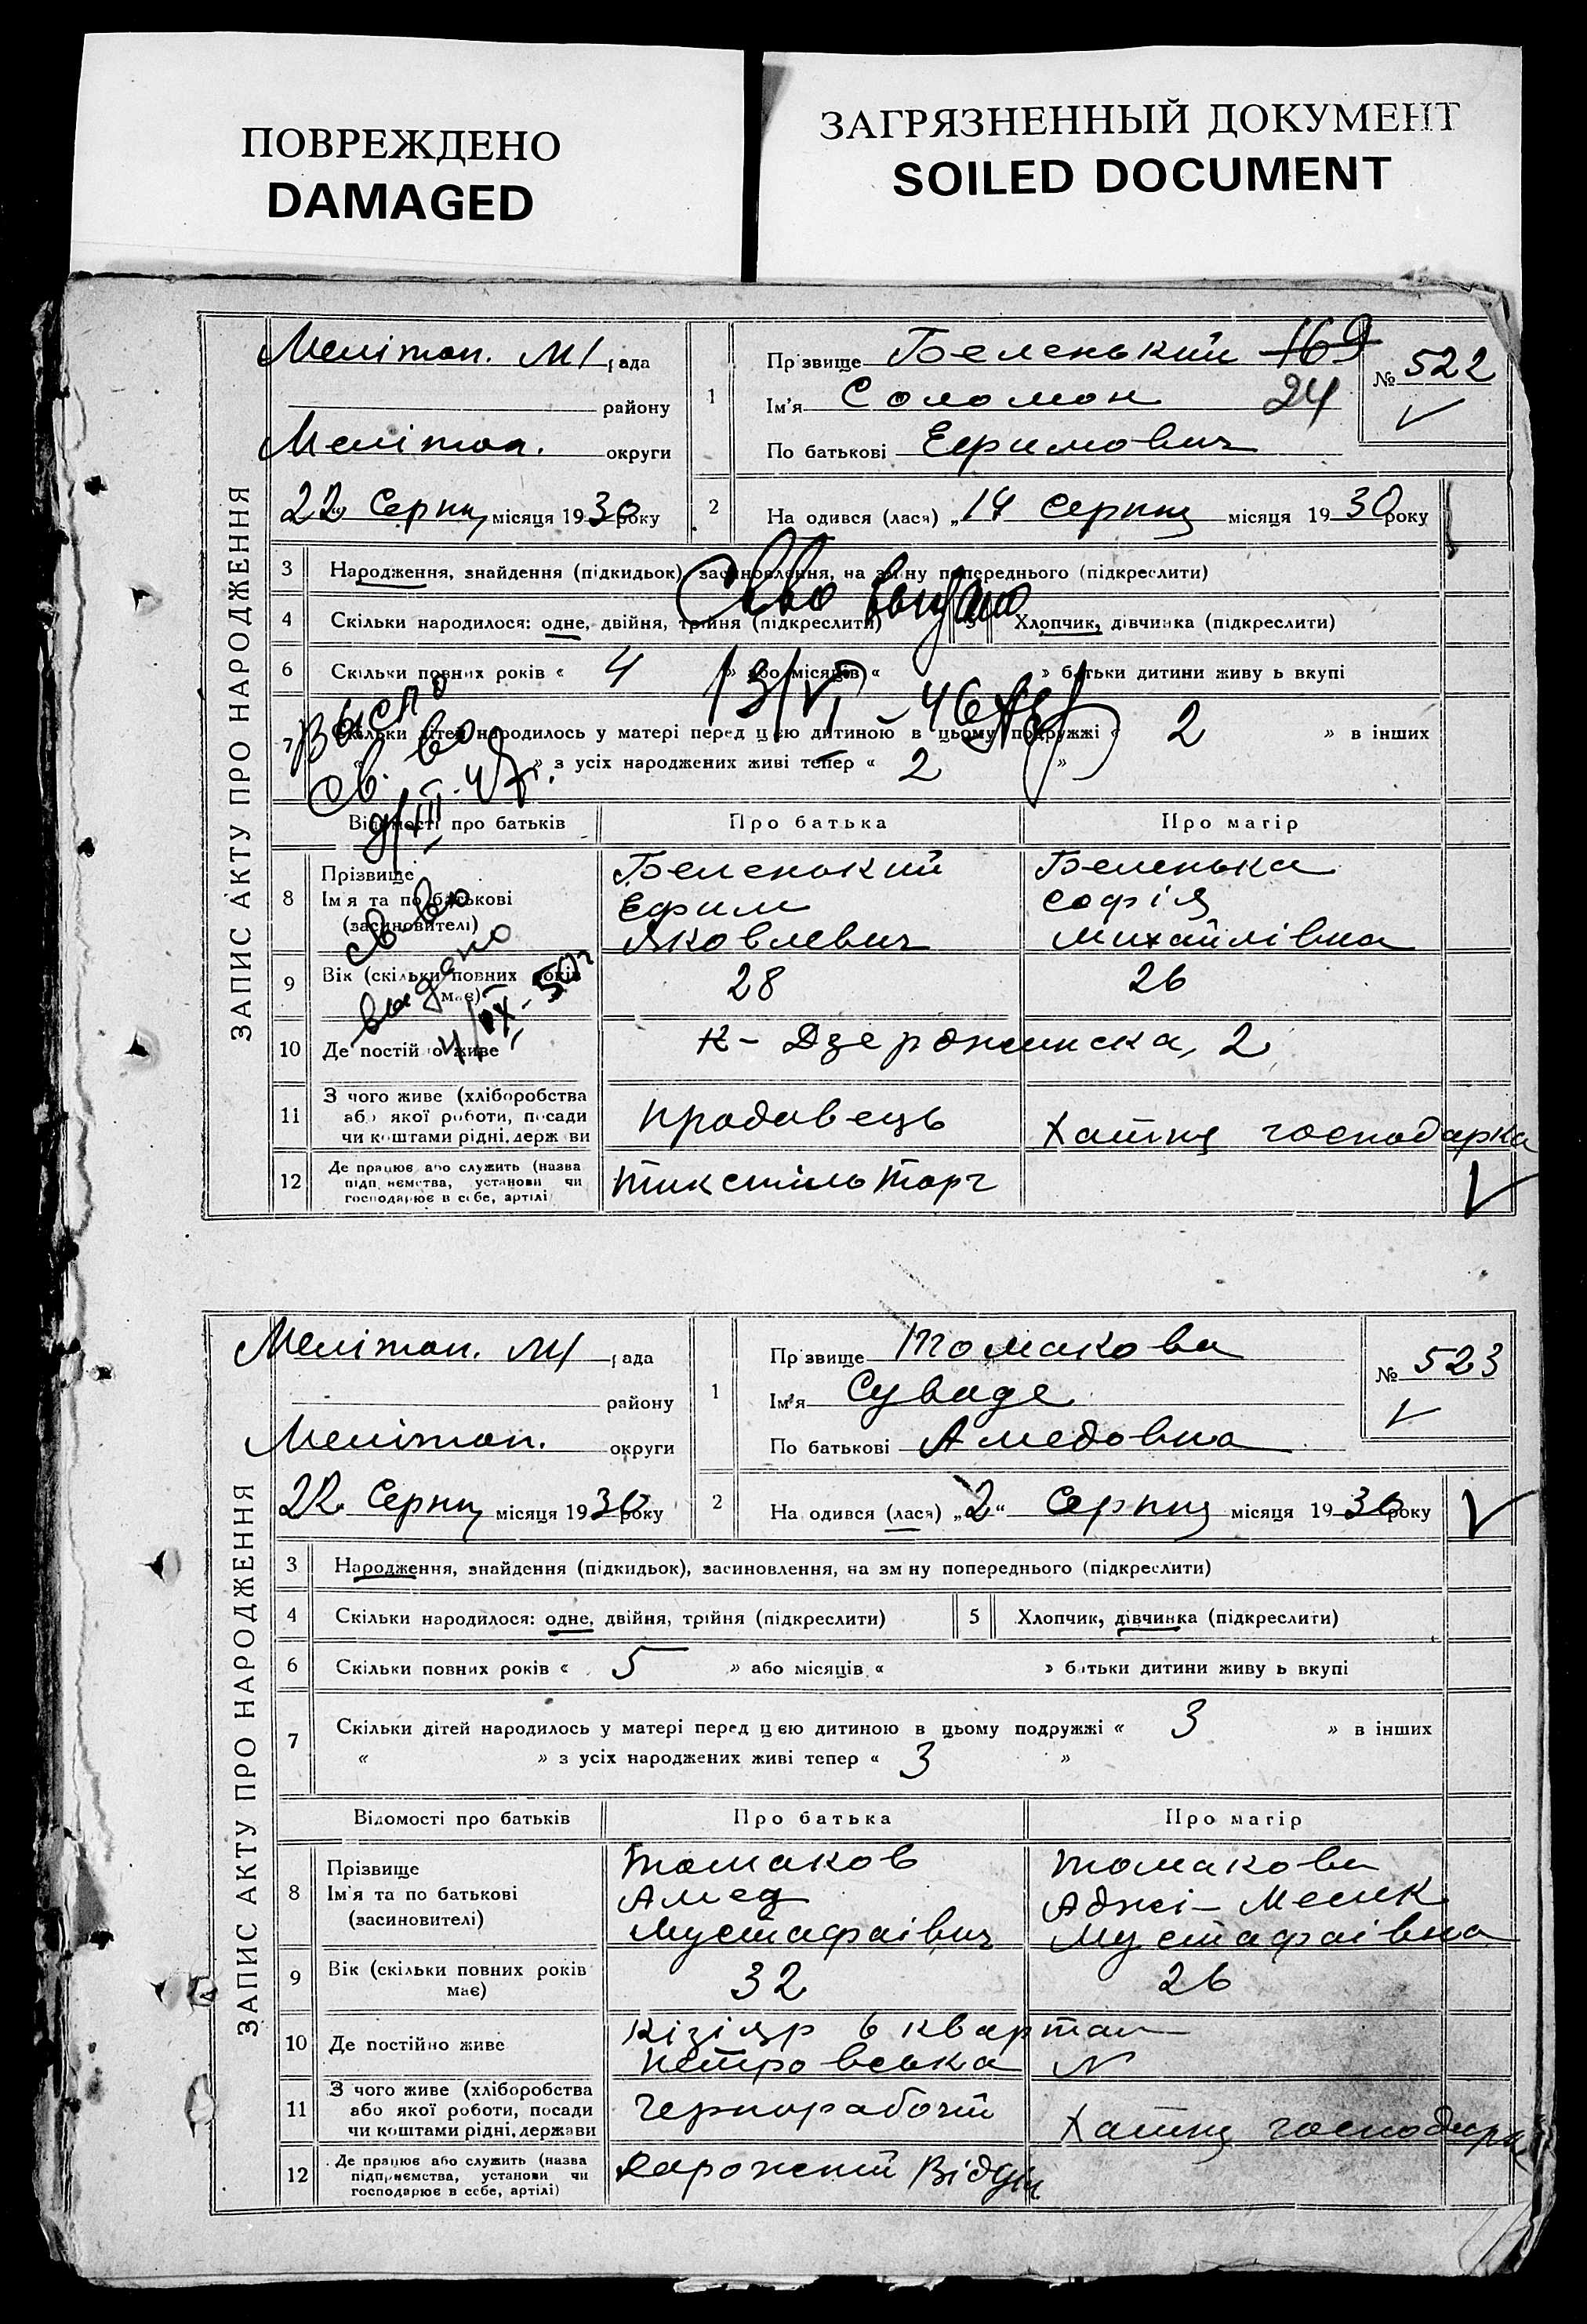 ПОВРЕЖДЕНО
DAMAGED
ЗАГРЯЗНЕННЫЙ ДОКУМЕНТ
SOILED DOCUMENT
ЗАПИС АКТУ ПРО НАРОДЖЕННЯ
Мелітоп. М/ рада
району
Мелітоп. округи
22 Серпня місяця 1930 року
1
Прізвище Беленький 169
Ім'я Соломон 24
По батькові Ефимович
№ 522
2
На одився (лася) „14 Серпня місяця 1930 року
3 Народження, знайдення (підкидьок), засиновлення, на зміну попереднього (підкреслити)
Св-во выдано
4 Скільки народилося: одне, двійня, трійня (підкреслити) 5 Хлопчик, дівчинка (підкреслити)
6 Скільки повних років « 4 » або місяців « » батьки дитини живуть вкупі
13/VI - 46
7 Скільки дітей народилось у матері перед цією дитиною в цьому подружжі « 2 » в інших
« » з усіх народжених живі тепер « 2 »
св. во
III-47г.
Відомості про батьків Про батька Про матір
8 Прізвище
Ім'я та по батькові
(засиновителі)
Беленький
Ефим
Яковлевич
Беленька
Софія
Михайлівна
св во
выдано
4/IX-50г
9 Вік (скільки повних років має) 28 26
10 Де постійно живе К- Дзержинска, 2
11 З чого живе (хліборобства
або якої роботи, посади
чи коштами рідні, держави
продавець Хатня господарка
12 Де працює або служить (назва
підприємства, установи чи
господарює в себе, артілі)
Тикстильторг
ЗАПИС АКТУ ПРО НАРОДЖЕННЯ
Мелітоп. М/ рада
району
Мелітоп. округи
22 Серпня місяця 1930 року
1
Прізвище Томакова
Ім'я Суваде
По батькові Амедовна
№ 523
2
На одився (лася) „2“ Серпня місяця 1930 року
3 Народження, знайдення (підкидьок), засиновлення, на зміну попереднього (підкреслити)
4 Скільки народилося: одне, двійня, трійня (підкреслити) 5 Хлопчик, дівчинка (підкреслити)
6 Скільки повних років « 5 » або місяців « » батьки дитини живуть вкупі
7 Скільки дітей народилось у матері перед цією дитиною в цьому подружжі « 3 » в інших
« » з усіх народжених живі тепер « 3 »
Відомості про батьків Про батька Про матір
8 Прізвище
Ім'я та по батькові
(засиновителі)
Томаков
Амед
Мустафаівич
Томакова
Аджі-Мелек
Мустафаівна
9 Вік (скільки повних років має) 32 26
10 Де постійно живе Кізіяр 6 квартал
Петровська N
11 З чого живе (хліборобства
або якої роботи, посади
чи коштами рідні, держави
Чернорабочій Хатня господарка
12 Де працює або служить (назва
підприємства, установи чи
господарює в себе, артілі)
Дорожній Відділ